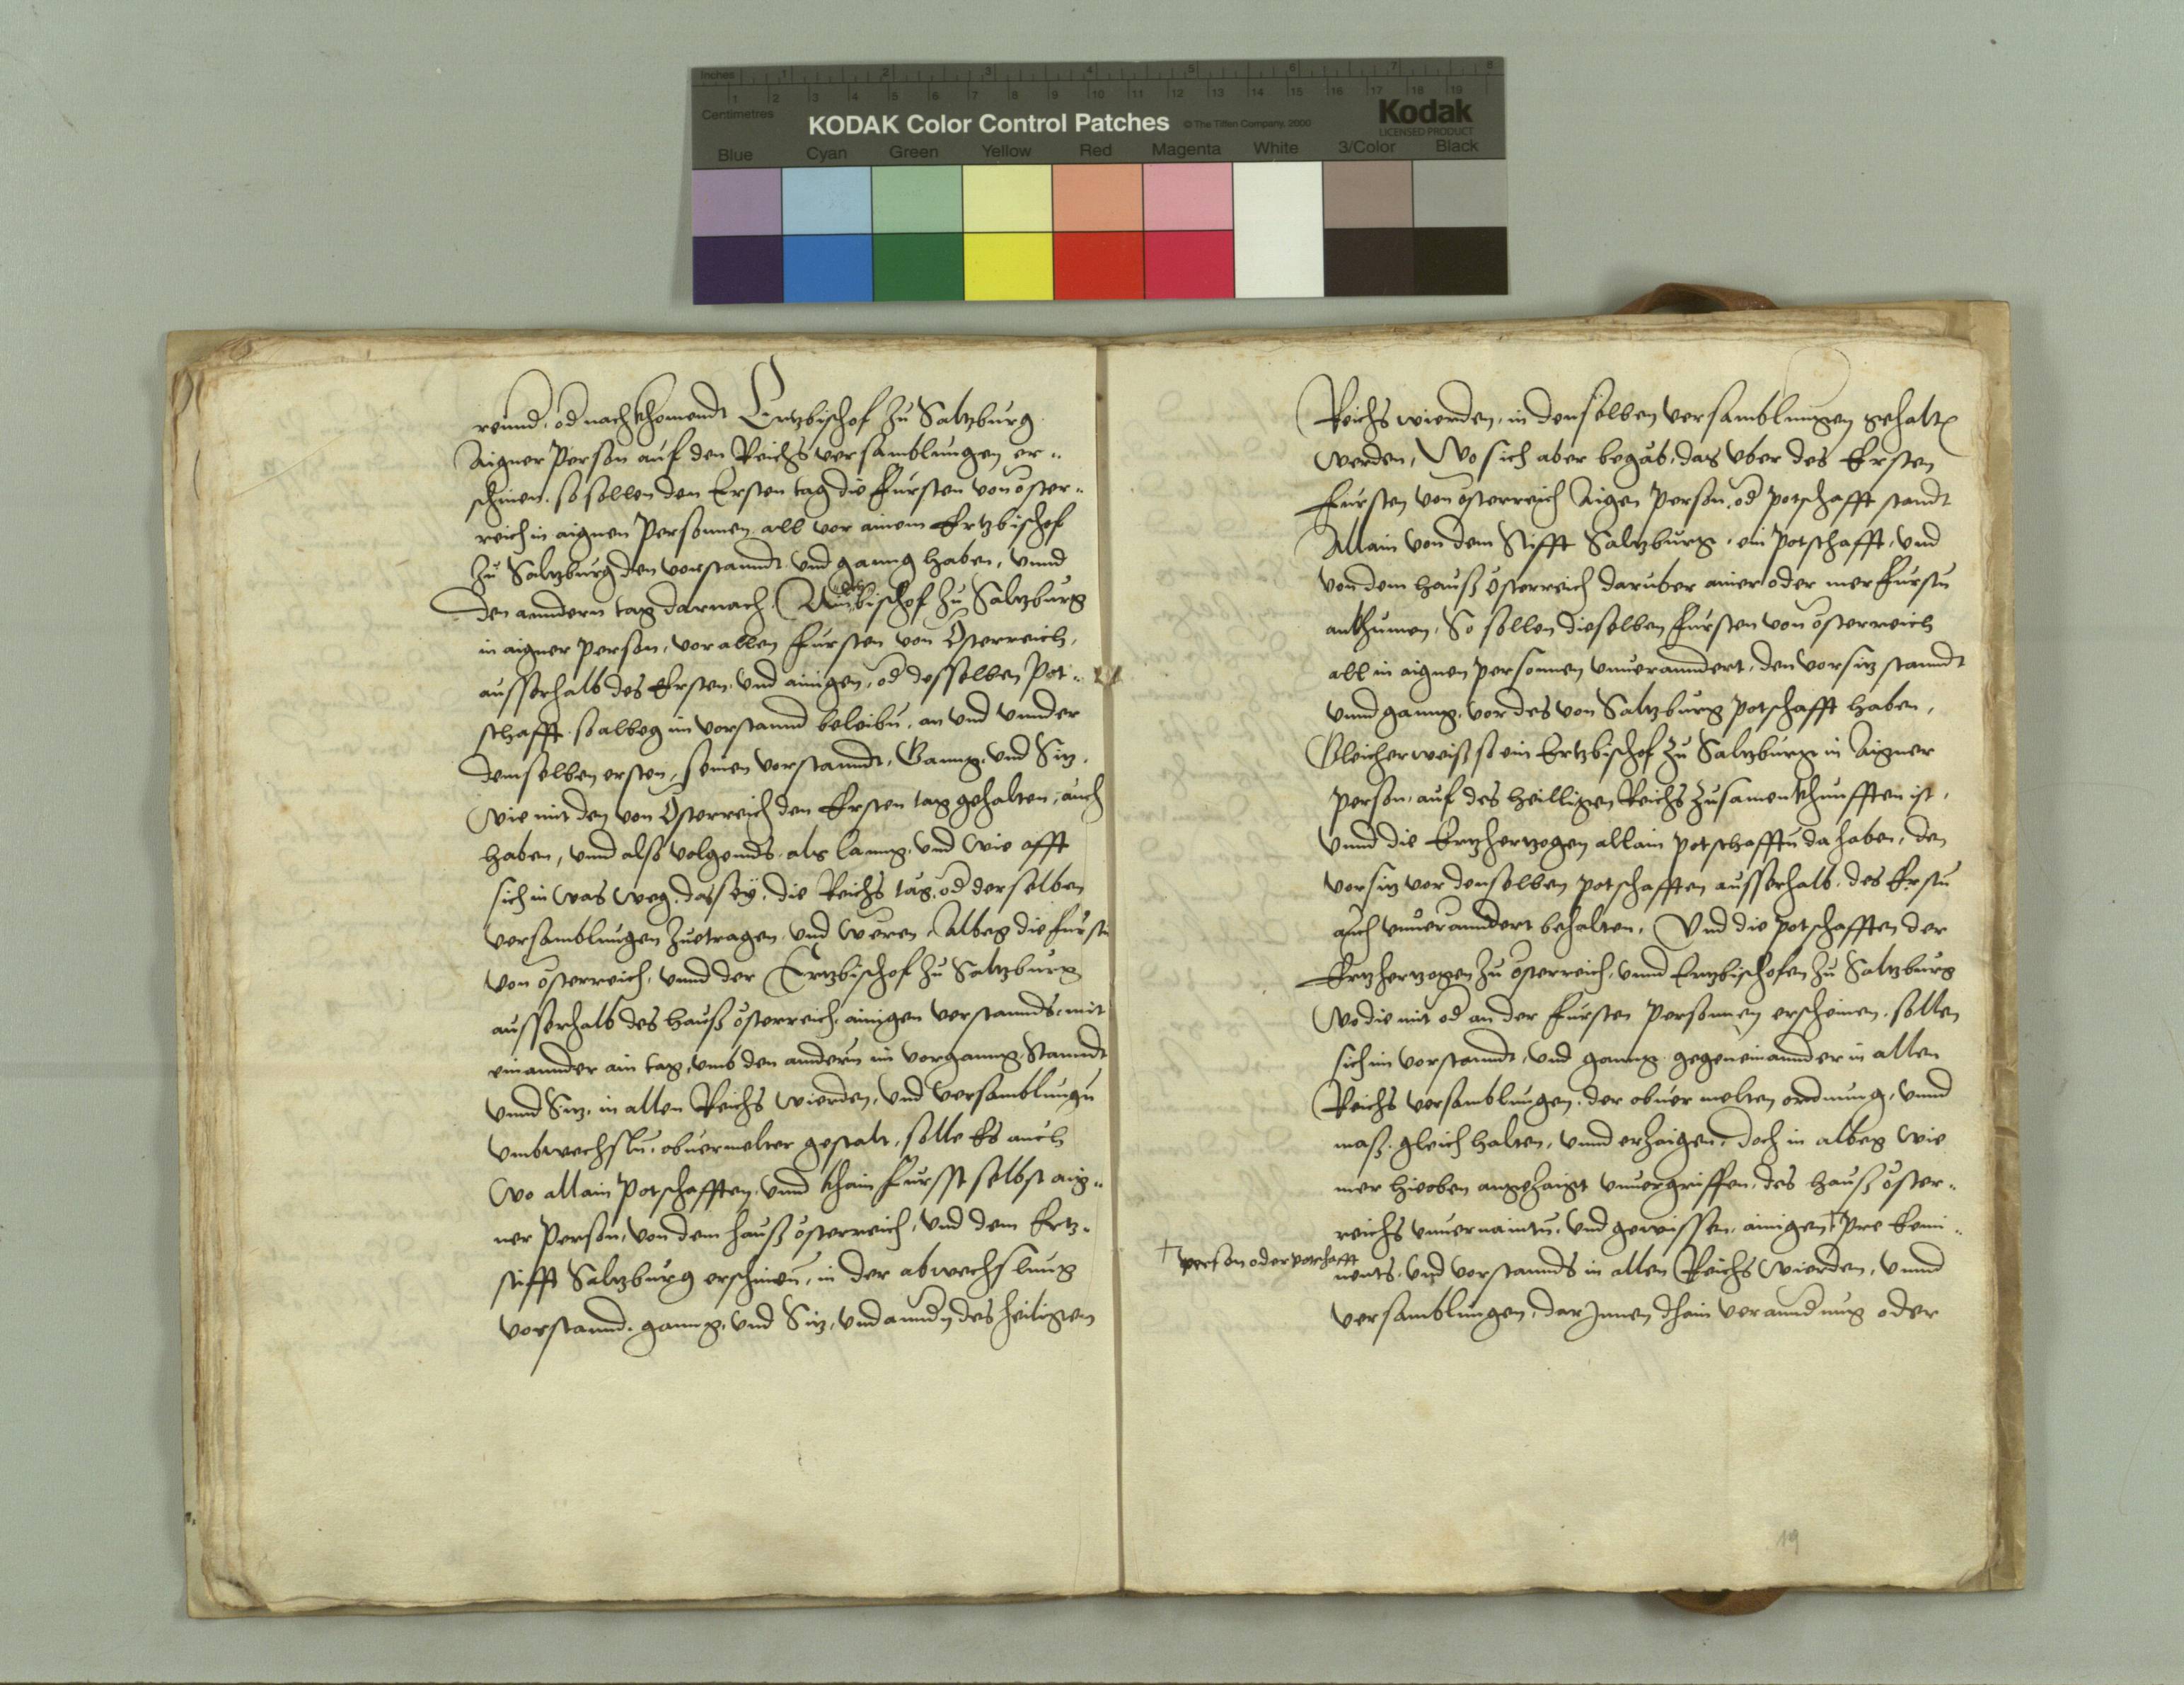 Inches 1 2 3 4 5 6 7 8
Centimetres 1 2 3 4 5 6 7 8 9 10 11 12 13 14 15 16 17 18 19
KODAK Color Control Patches © The Tiffen Company, 2000 Kodak
LICENSED PRODUCT
Blue Cyan Green Yellow Red Magenta White 3/Color Black
rennd, od nachkhomendt Ertzbischof zu Saltzburg
Aigner Person auf den Reichs versamblungen er-
schinen. so sollen den Ersten tag die Fursten von öster-
reich in aignen Personnen all vor ainem Ertzbischof
zu Saltzburg den vorstanndt und ganng haben, unnd
den anndern tag darnach. Ain bischof zu Saltzburg
in aigner person, vor allen Fursten von Österreich,
ausserhalb des Ersten, und ainigen, od desselben Pot-
schafft so albeg im vorstannd beleibn, an und unnder
demselben ersten, seinen vorstanndt, Ganng, und Sitz,
Wie mit den von Österreich den Ersten tag gehalten, auch
haben, unnd also volgends, als lanng, und Wie offt
sich in was weg, das sey, die Reichs täg, od derselben
versamblungen zuetragen, und weren, Albeg die furstn
von österreich, unnd der Ertzbischof zu Saltzburg
ausserhalb des Hauß österreich, ainigen vorstannds, mit
einannder ain tag, umb den andern im vorganng, Stanndt
unnd Sitz, in allen Reichs wierden, und versamblungn
umbwechsln, obuermelter gestalt, solle Es auch
Wo allain Potschafften, unnd khain Furst selbst aig-
ner Person, von dem hauß österreich, und dem Ertz-
stifft Saltzburg erschinen, in der abwechslung
vorstannd, ganng, und Sitz, und annders des heiligen
Reichs wierden, in denselben versamblungen gehaltn
werden, Wo sich aber begäb, das uber des Ersten
Fursten von österreich Aigen Person, od potschafft standt
Allain von dem Stifft Saltzburg, ein potschafft, und
von dem hauß Österreich daruber ainer oder mer fursten
ankhumen, So sollen dieselben Fursten von österreich
all in aignen personnen unuerenndert, den vorsitz stanndt
unnd ganng, vor des von Saltzburg potschafft haben,
Gleicherweiß so ein Ertzbischof zu Saltzburg in Aigner
person, auf des heilligen Reichs zusamenkhunfften ist,
unnd die Ertzhertzogen allain potschafften da haben, den
vorsitz vor denselben potschafften ausserhalb, des Ersten
auch unuerenndert behalten, Und die potschafften der
Ertzhertzogen zu österreich, unnd Ertzbischofen zu Saltzburg
Wo die mit od an der Fursten Personnen erscheinen, sollen
sich im vorstanndt, und ganng gegeneinannder in allen
Reichs versamblungen, der obuermelten ordnung, unnd
maß, gleich halten, unnd erzaigen, doch in albeg wie
mer hieoben angezaigt unuergriffen, des hauß öster-
reichs unuernaintn, und gewissen, ainigen † Pre Emi-
† person oder potschafft
nents, und vorstannds in allen Reichs Wierden, unnd
versamblungen, dar Innen khain verenndrung oder
19